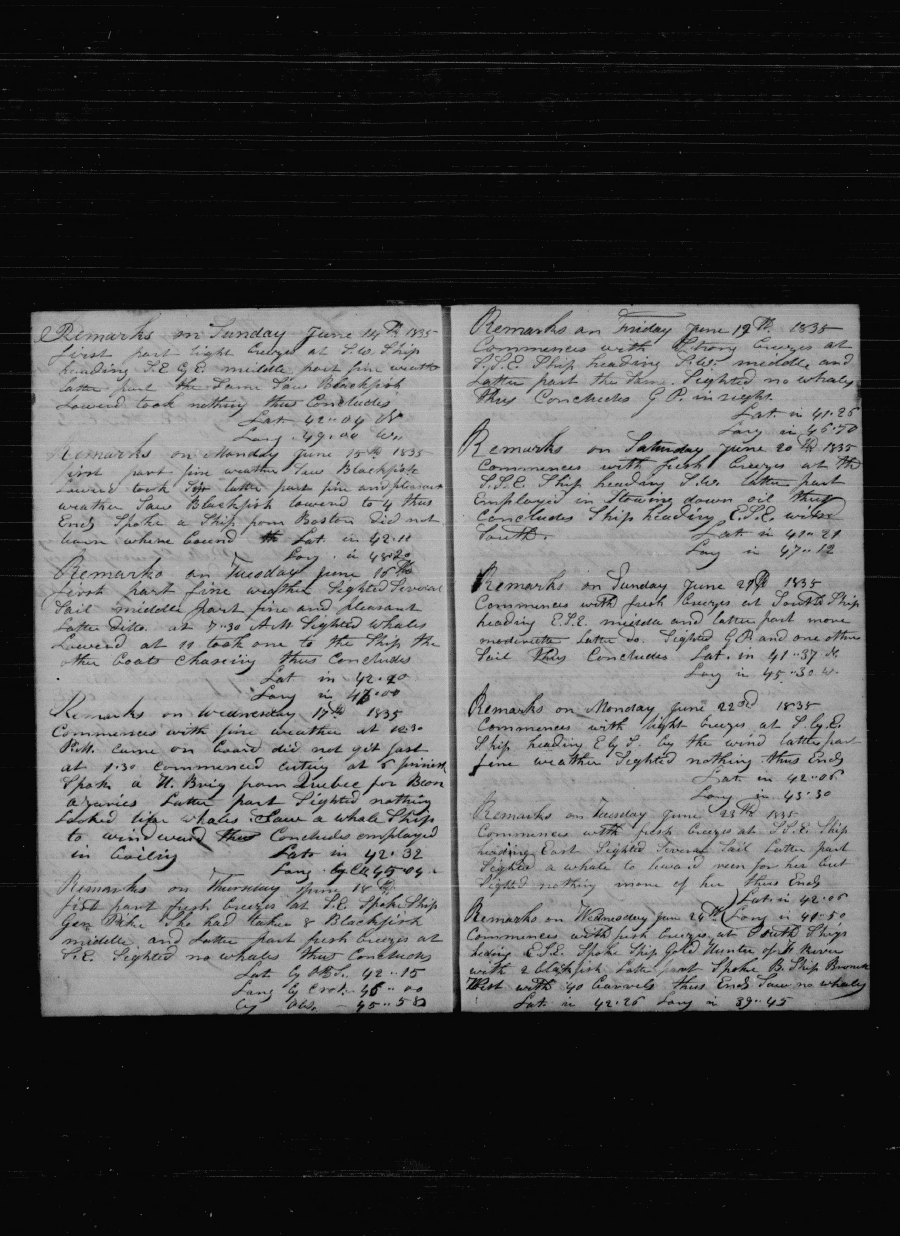 Remarks on Sunday June 14th 1835
first part light breezes at S.W. Ship
heading S.E. by E. middle part fine weather
latter part the Same Saw Blackfish
Lowerd took nothing thus Concludes
Lat 42.04 N
Long 49.00 W.
Remarks on Monday June 15th 1835
first part fine weather Saw Blackfish
Lowerd took latter part fine and pleasant
weather Saw Blackfish lowerd to 4 thus
Ends Spoke a Ship from Boston did not
learn where bound Lat. in 42.11
Long. in
Remarks on Tuesday June 16th
First part fine weather Sighted Several
Sail middle part fine and pleasant
Latter Ditto. at 7.30 A.M Sighted whales
Lowerd at 11 took one to the Ship the
other boats chaseing thus Concludes
Lat in
Long in
Remarks on Wednesday 17th 1835
Commences with fine weather at 12.30
P.M. came on board did not git fast
at 1.30 commenced cuting at 6 finished
Spoke a H. Brig from Quebec for
Latter part Sighted nothing
Looked for whales Saw a whale Ship
to windward thus Concludes employed
in boiling Lat in 42.32
Long. by
Remarks on Thursday June 18th
first part fresh breezes at S.E. Spoke Ship
Gen Pike She had taken 8 Blackfish
middle and Latter part fresh breezes at
S.E. Sighted no whales thus Concludes
Lat by Obs. 42.15
Long by Cron. 46.00
by Obs. 45.58
Remarks on Friday June 19th 1835
Commences with Strong breezes at
S.S.E. Ship heading S.W. middle and
Latter part the Same. Sighted no whales
Thus Concludes G P. in sight
Lat. in 41.26
Long in
Remarks on Saturday June 20th 1835
Commences with fresh breezes at the
S.S.E. Ship heading S.W. latter part
Employed in Stowing down oil thus
Concludes Ship heading E.S.E. wind
South. Lat in 41.21
Long in 47.12
Remarks on Sunday June 21st 1835
Commences with fresh breezes at South Ship
heading E.S.E. middle and latter part more
moderate Latter do. Sighted G P. and one other
Sail thus Concludes Lat. in 41.37 N.
Long in 45.30 W.
Remarks on Monday June 22nd 1835
Commences with light breezes at S. by E.
Ship heading E by S. by the wind latter part
fine weather Sighted nothing thus Ends
Lat in 42.06
Long in 43.30
Remarks on Tuesday June 23rd 1835
Commences with fresh breezes at S.S.E. Ship
heading East Sighted Several Sail Latter part
Sighted a whale to leward run for her but
Sighted nothing more of her thus Ends
Lat in 42.06
Remarks on Wednesday June 24th Long in 41.50
Commences with fresh breezes at South Ship
heding E.S.E. Spoke Ship Gold Hunter of F. River
with 2 blackfish Latter part Spoke B. Ship
West with 40 barrels thus Ends Saw no whales
Lat. in 42.26 Long in 39.45